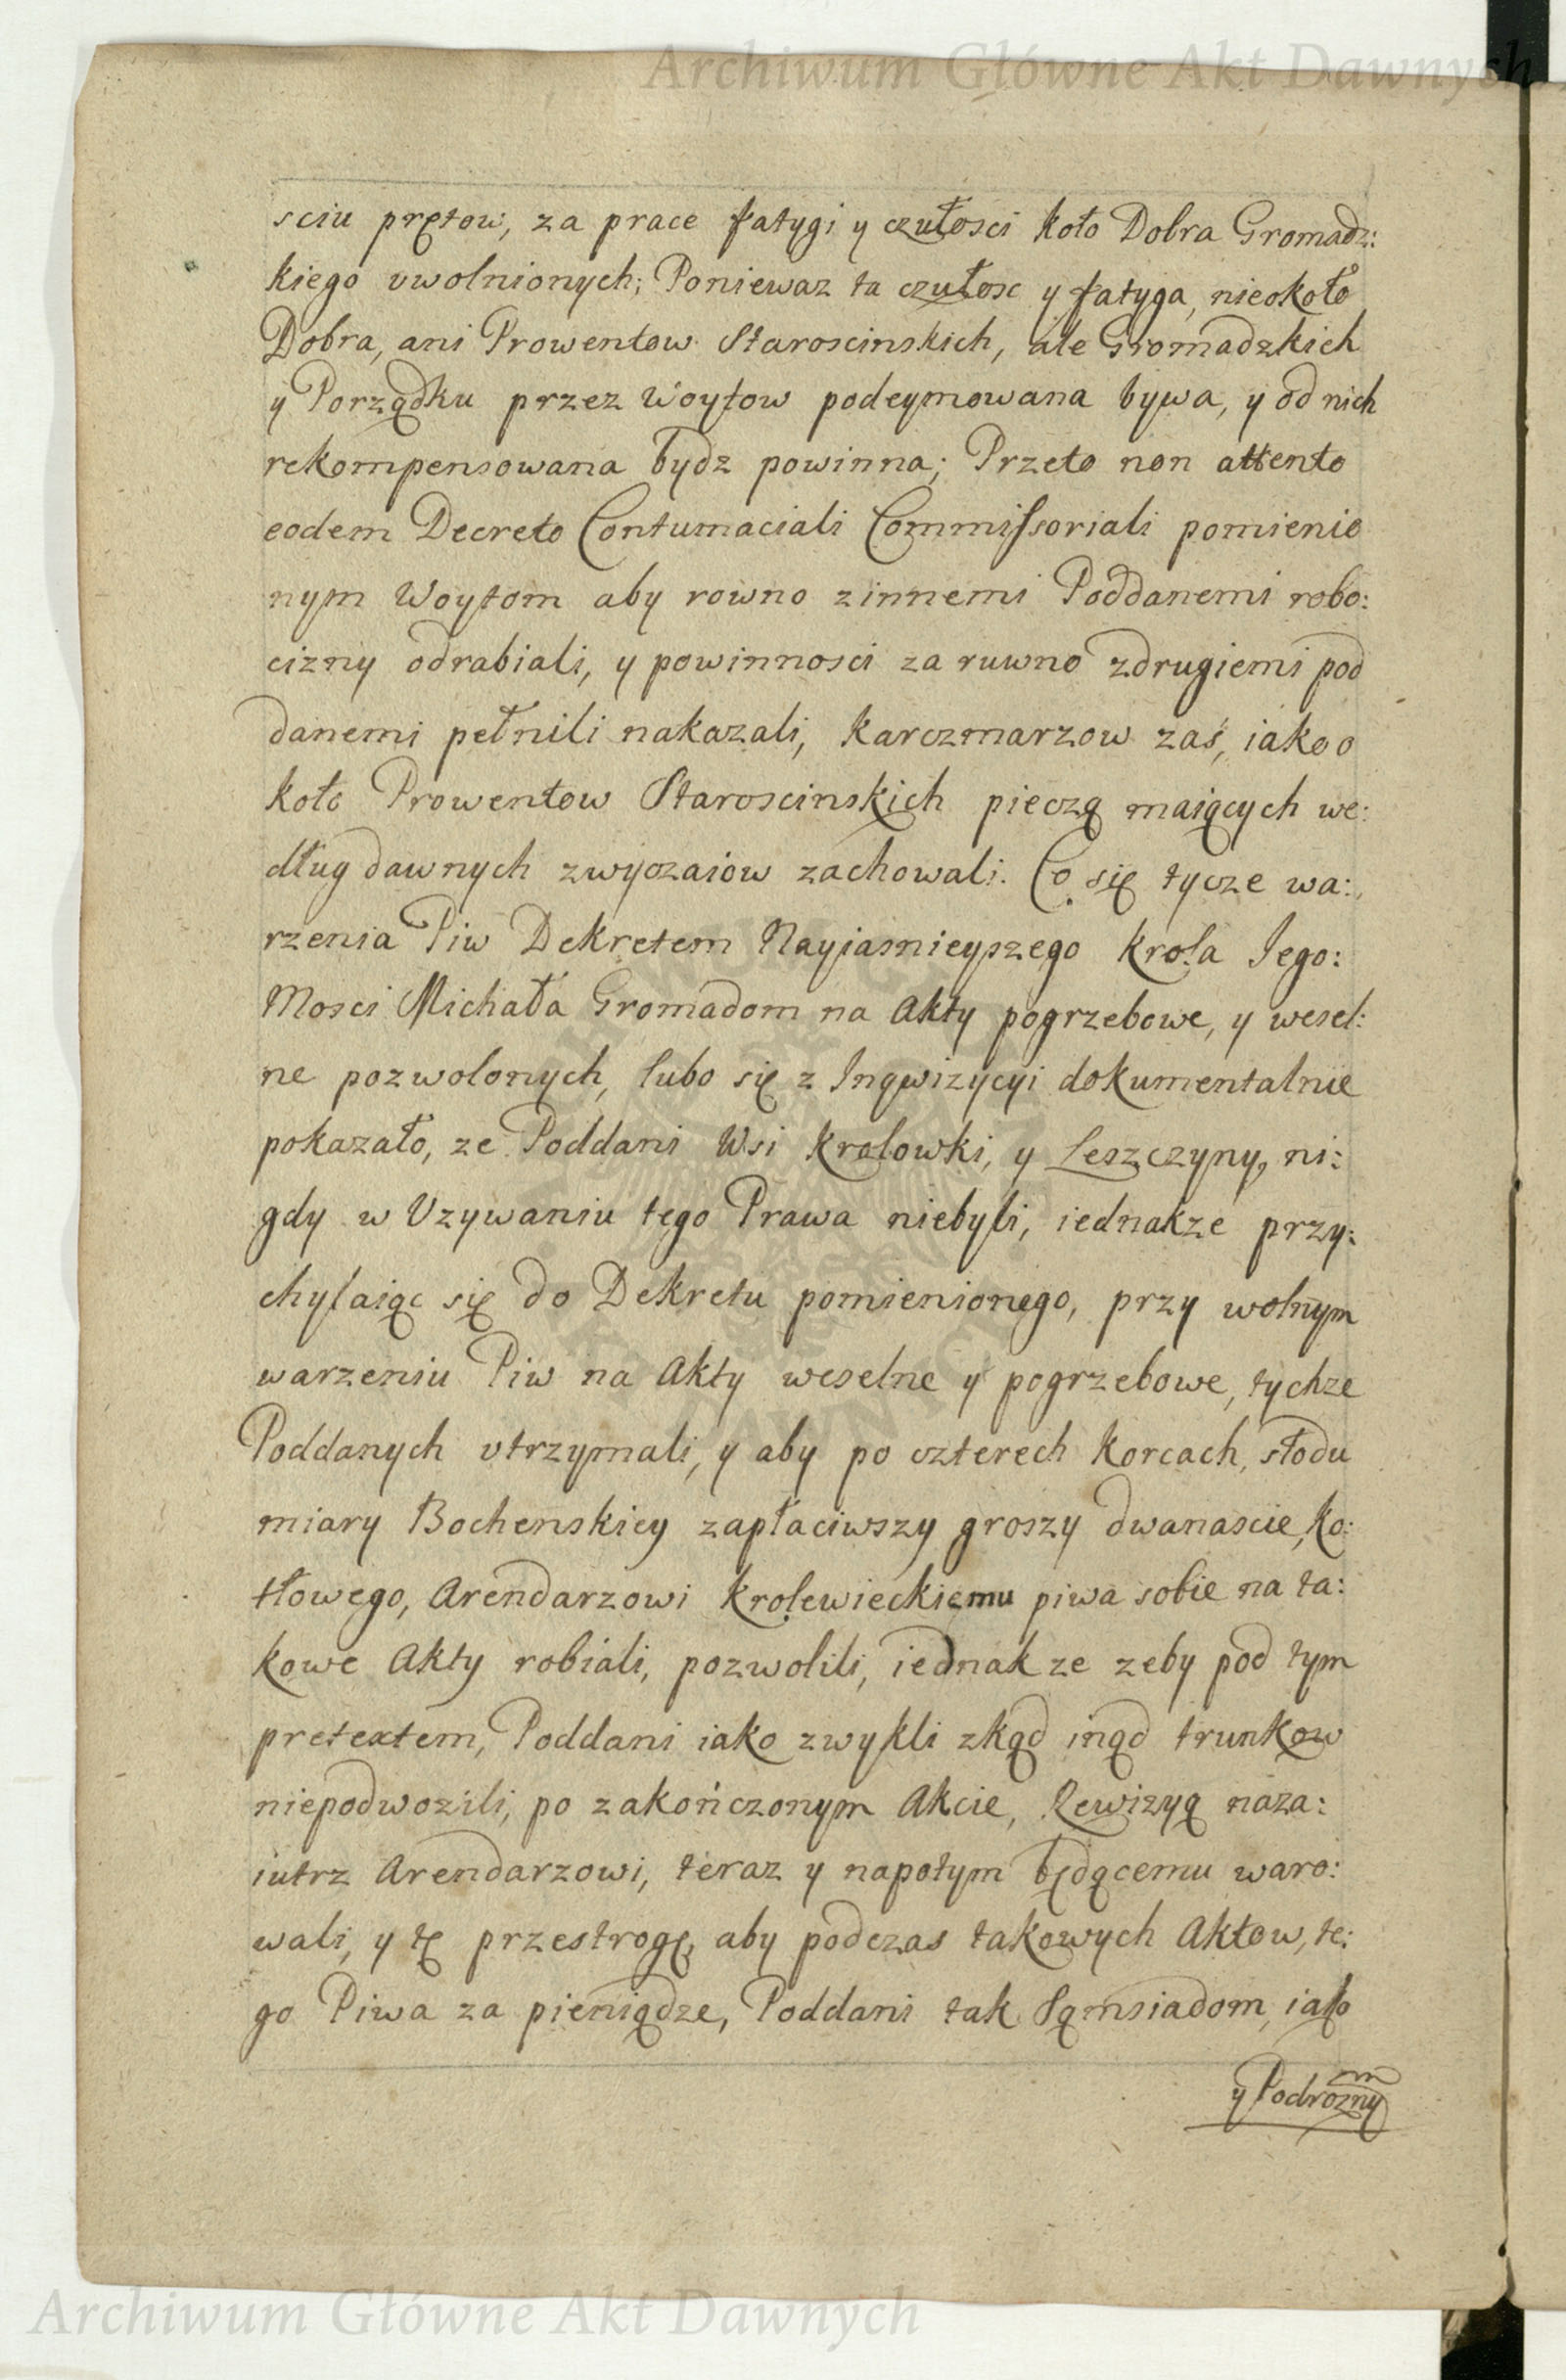 Archiwum Główne Akt Dawnych
sciu prętow, za prace fatygi y czułosci koło Dobra Gromadz:
kiego uwolnionych; Poniewaz ta czułosc y fatyga, nieokoło
Dobra, ani Prowentow Staroscinskich, ale Gromadzkich
y Porządku przez Woytow podeymowana bywa, y od nich
rekompensowana bydz powinna; Przeto non attento
eodem Decreto Contumaciali Commissoriali pomienio
nym Woytom aby rowno zinnemi Poddanemi robo:
cizny odrabiali, y powinnosci za ruwno zdrugiemi pod
danemi pełnili nakazali, karczmarzow zaś, iako o
koło Prowentow Staroscinskich pieczą maiących we:
dług dawnych zwyczaiow zachowali. Co się tycze wa:
rzenia Piw Dekretem Nayiasnieyszego Krola Jego:
Mosci Michała Gromadom na Akty pogrzebowe, y wesel:
ne pozwolonych, lubo się z Inqwizycyi dokumentalnie
pokazało, ze Poddani Wsi Krolowki, y Leszczyny, ni:
gdy w Uzywaniu tego Prawa niebyli, iednakze przy:
chylaiąc się do Dekretu pomienionego, przy wolnym
warzeniu Piw na Akty weselne y pogrzebowe, tychze
Poddanych utrzymali, y aby po czterech korcach, słodu
miary Bochenskiey zapłaciwszy groszy dwanascie, ko:
tłowego, Arendarzowi Krolewieckiemu piwa sobie na ta:
kowe Akty robiali, pozwolili, iednak ze zeby pod tym
pretextem, Poddani iako zwykli zkąd inąd trunkow
niepodwozili, po zakończonym Akcie, Rewizyą naza:
iutrz Arendarzowi, teraz y napotym będącemu waro:
wali, y tę przestrogę, aby podczas takowych Aktow, te:
go Piwa za pieniądze, Poddani tak Sąmsiadom, iako
y Podroznym
Archiwum Główne Akt Dawnych